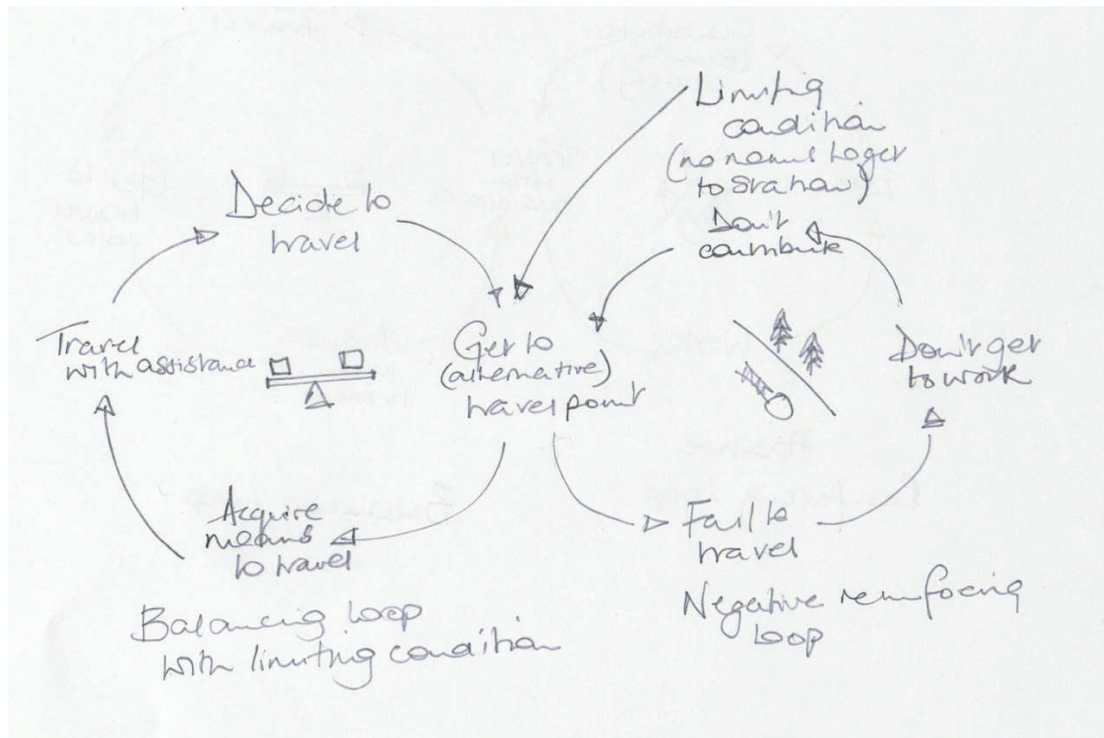 Limiting
condition
(no means to get
to station)
Decide to
travel
Don't
contribute
Travel
with assistance
Get to
(alternative)
travel point
Don't get
to work
Acquire
means
to travel
Fail to
travel
Balancing loop
with limiting condition
Negative reinforcing
loop